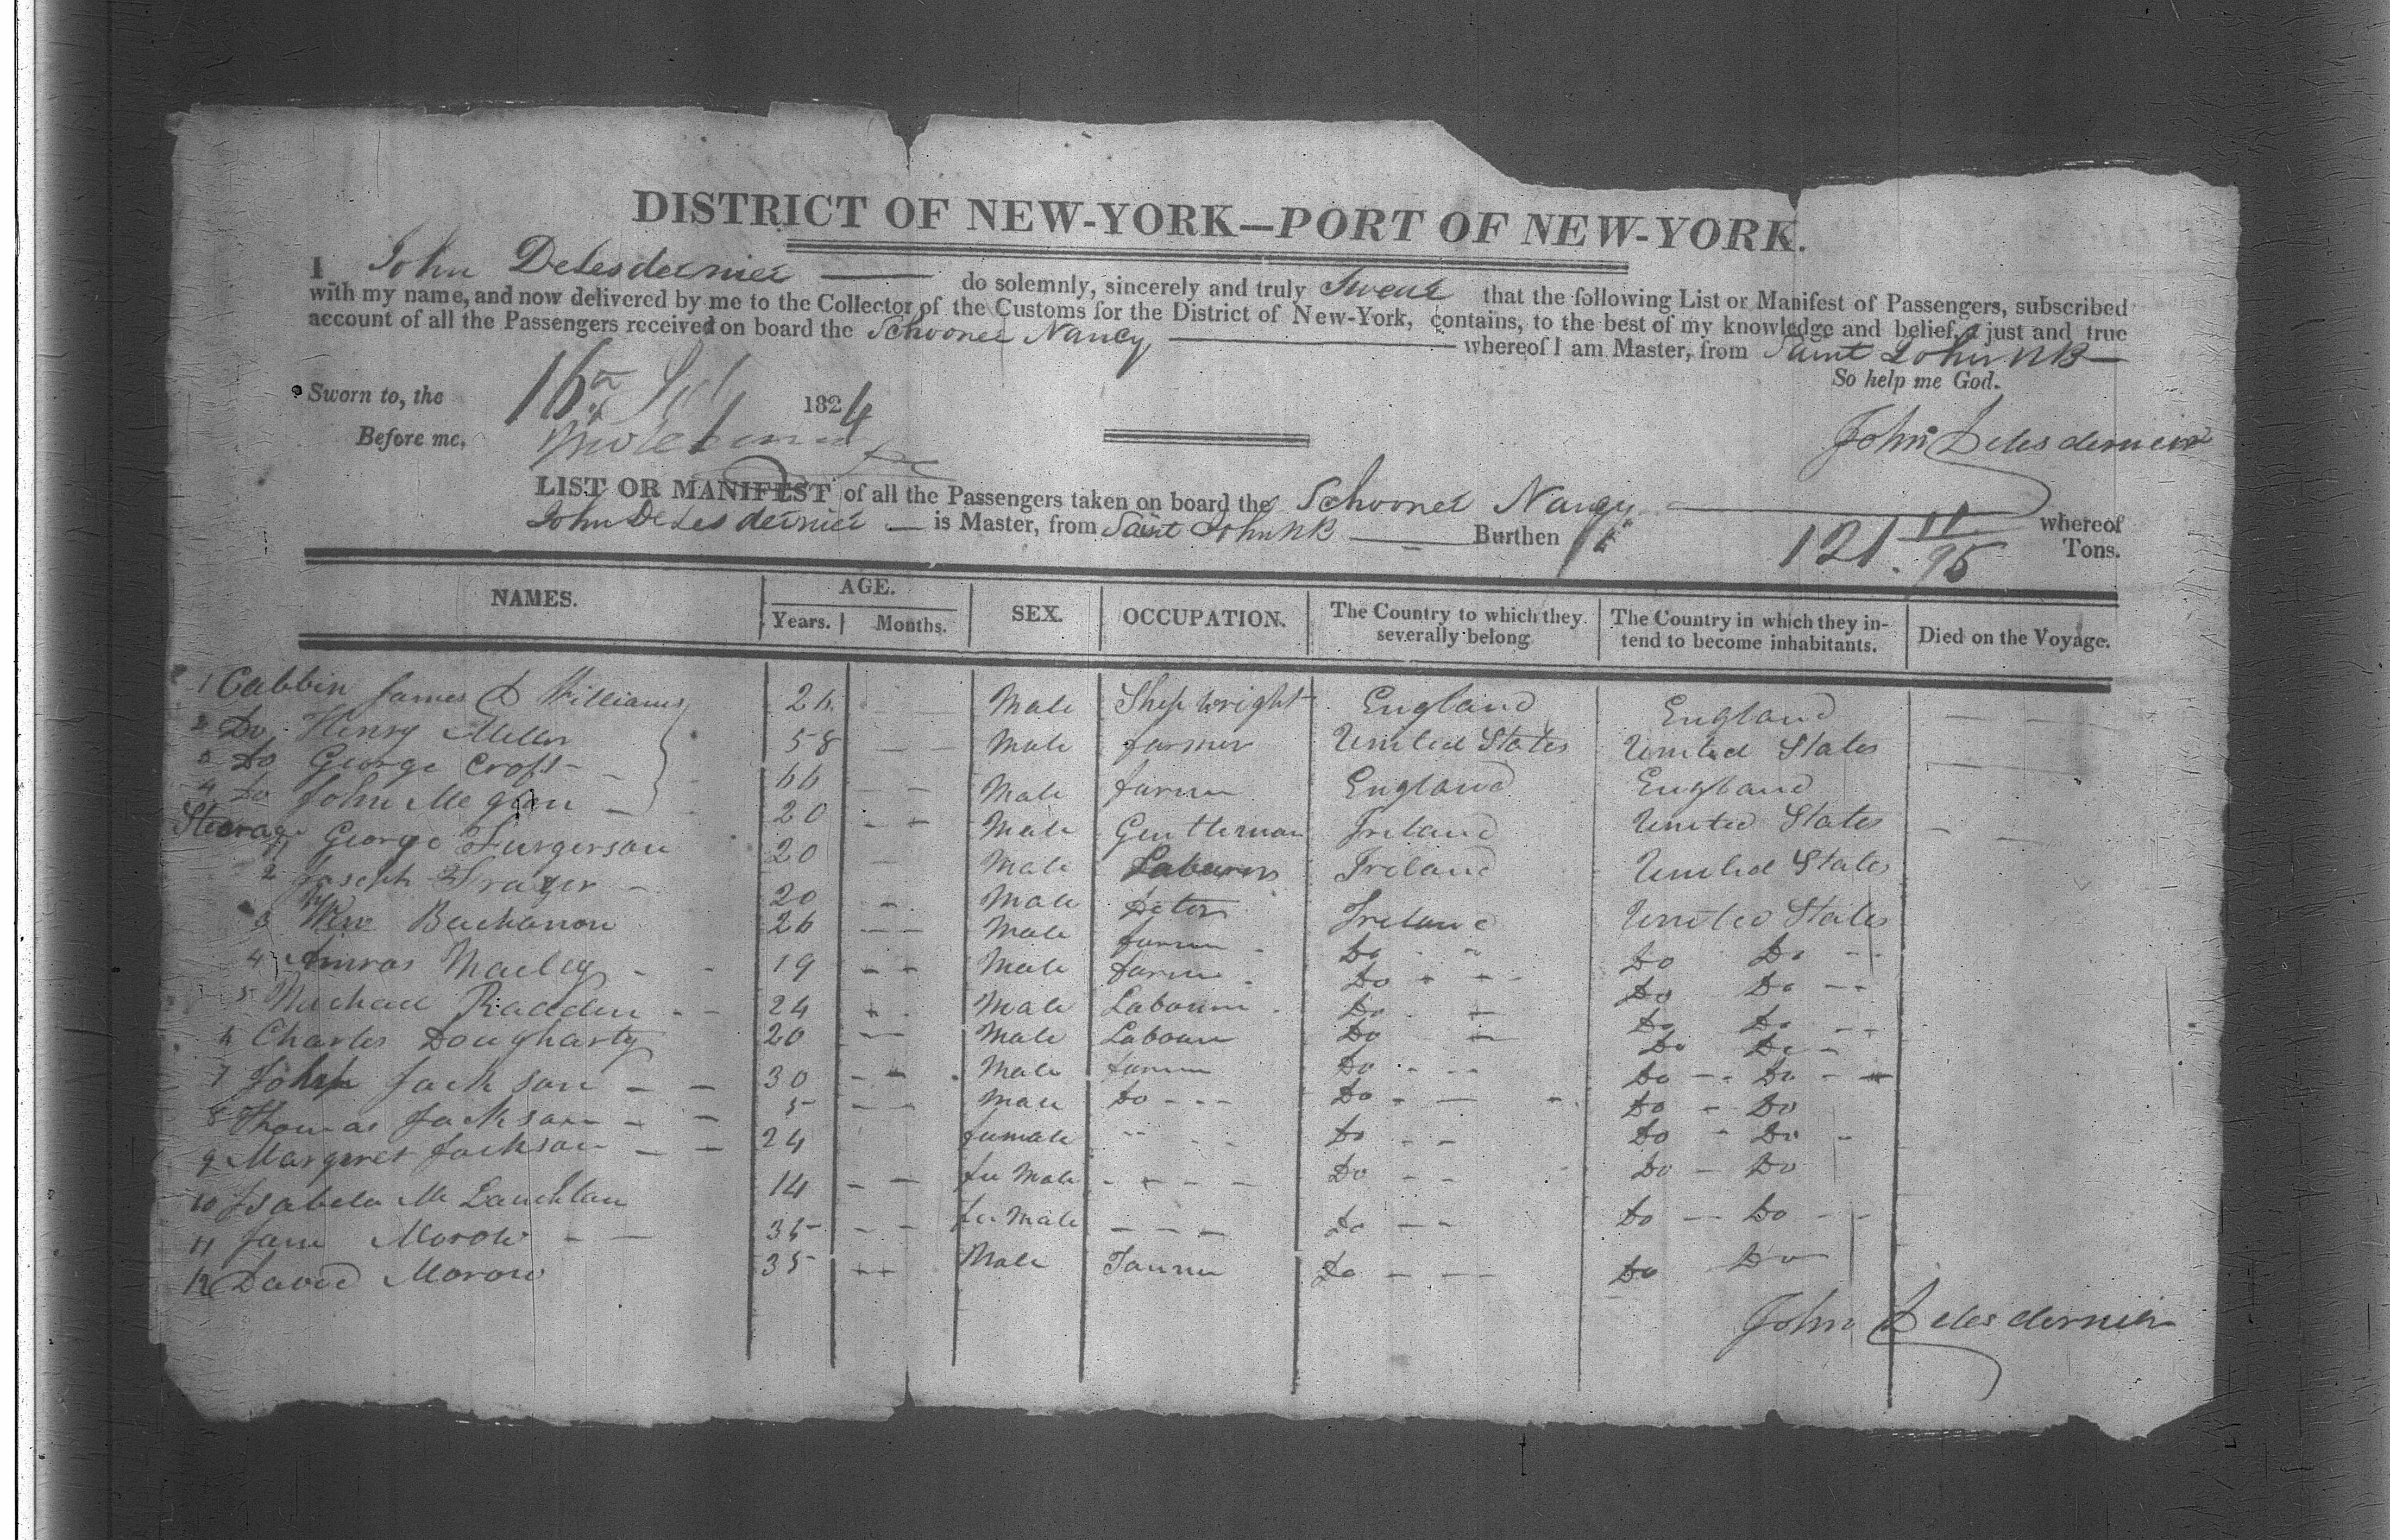 DISTRICT OF NEW-YORK—PORT OF NEW-YORK.
I John Delesdernier do solemnly, sincerely and truly Swear that the following List or Manifest of Passengers, subscribed
with my name, and now delivered by me to the Collector of the Customs for the District of New-York, contains, to the best of my knowledge and belief, a just and true
account of all the Passengers received on board the Schooner Nancy whereof I am Master, from Saint John NB
So help me God.
Sworn to, the 16 1824
Before me, John Delesdernier
LIST OR MANIFEST of all the Passengers taken on board the Schooner Nancy whereof
John Delesdernier is Master, from Saint John NB Burthen 121 11/95 Tons.
NAMES. AGE. Years. Months. SEX. OCCUPATION. The Country to which they severally belong The Country in which they intend to become inhabitants. Died on the Voyage.
1 Cabbin James D Williams 26 Male Shipwright England England
2 Do Henry Miller 58 Male farmer United States United States
3 Do George Croft 66 Male farmer England England
4 Do John Me 20 Male Gentleman Ireland United States
Steerage 1 George Furgerson 20 Male Labourer Ireland United States
2 Joseph Frazer 20 Male Ireland United States
3 Wm Buchanon 26 Male farmer Do Do Do
4 19 Male farmer Do Do Do
5 Michael Radden 24 Male Labourer Do Do Do
6 Charles Dougharty 20 Male Labourer Do Do Do
7 John Jackson 30 Male farmer Do Do Do
8 Thomas Jackson 5 Male Do Do Do Do
9 Margret Jackson 24 female Do Do Do
10 Isabela Mc Lauchlan 14 fe Male Do Do Do
11 Jane Morow 35 fe Male Do Do Do
12 David Morow 35 Male Do Do Do
John Delesdernier